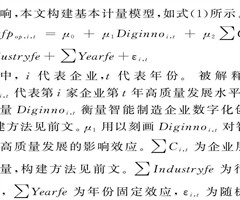 响,本文构建基本计量模型,如式(1)所示。
fp_{op,i,t} = μ₀ + μ₁Diginno_{i,t} + μ₂∑C
ndustryfe + ∑Yearfe + ε_{i,t}
中,i 代表企业,t 代表年份。 被解释
代表第 i 家企业第 t 年高质量发展水平
量 Diginno 衡量智能制造企业数字化创
建方法见前文。μ₁ 用以刻画 Diginno_{i,t} 对智
高质量发展的影响效应。∑C_{i,t} 为企业层
量,构建方法见前文。∑Industryfe 为行
,∑Yearfe 为年份固定效应,ε_{i,t} 为随机